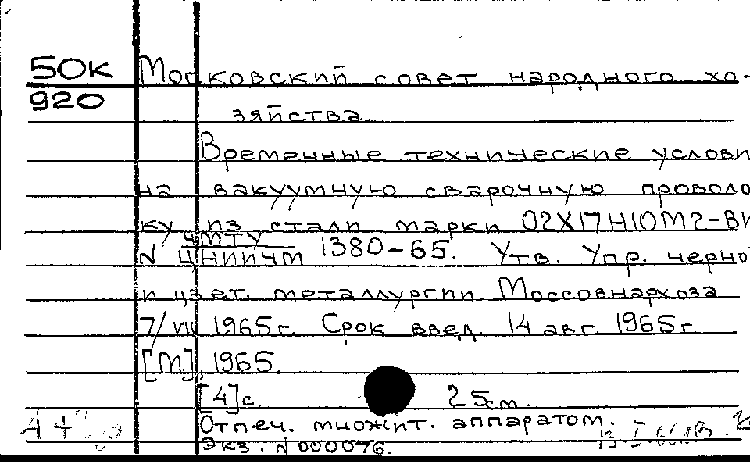 50К
920
Московский совет народного хо-
зяйства
Временные технические услови
на вакуумную сварочную проволо
ку из стали марки 02Х17Н10М2-ВИ
ЧМТУ
N ЦНИИЧМ 1380-65. Утв. Упр. черно
и цвет. металлургии Моссовнархоза
7/VII 1965г. Срок введ. 14 авг. 1965г
[М], 1965.
[4]с. 25см.
Отпеч. множит. аппаратом.
Экз. N 000076.